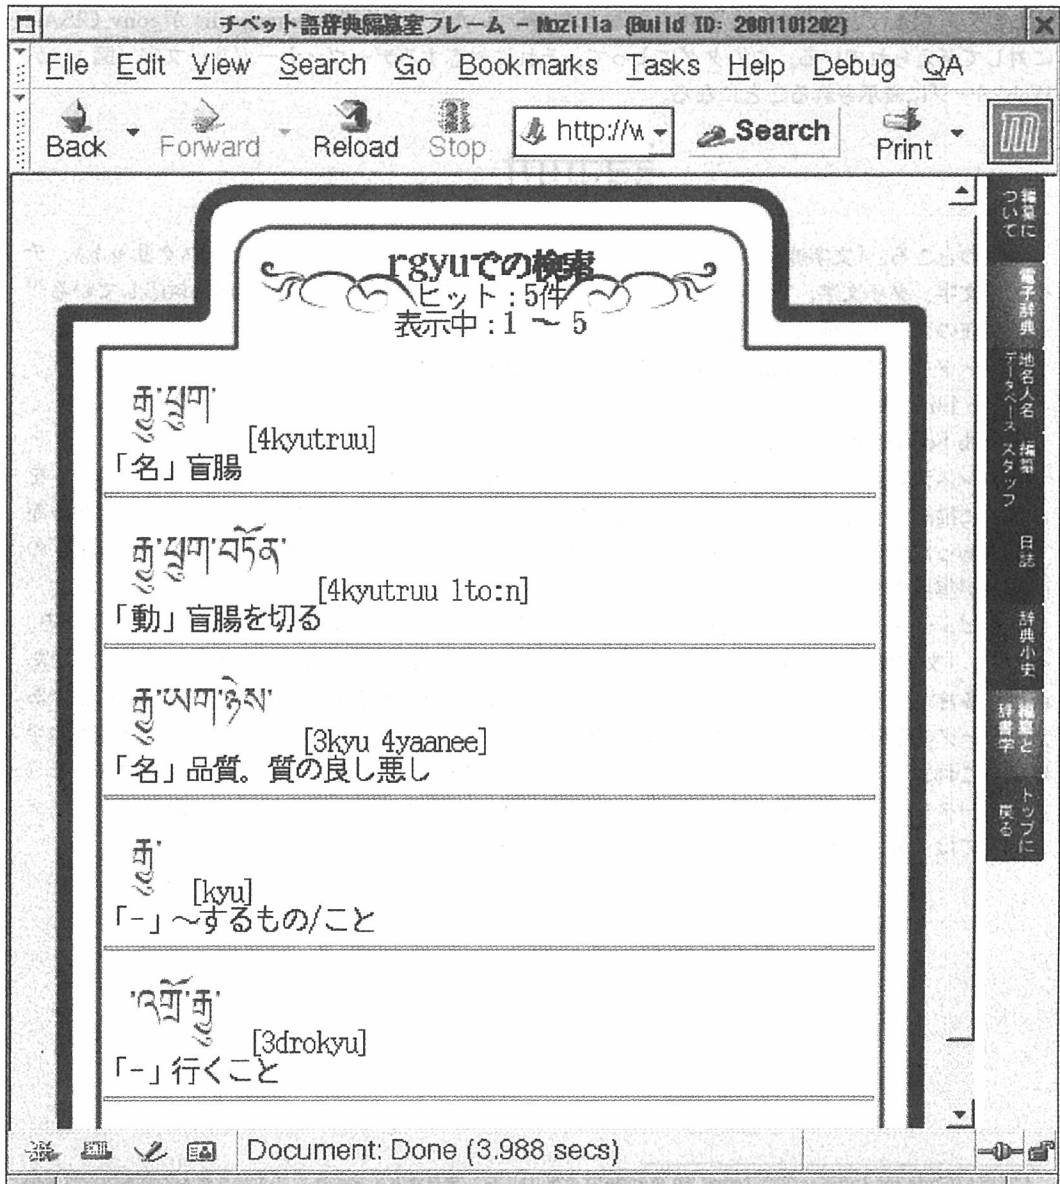 チベット語辞典編纂室フレーム - Mozilla {Build ID: 2001101202}
File Edit View Search Go Bookmarks Tasks Help Debug QA
Back Forward Reload Stop http://w Search Print
rgyuでの検索
ヒット:5件
表示中:1 ～ 5
རྒྱུ་ལྤྲག་
[4kyutruu]
「名」盲腸
[4kyutruu 1to:n]
「動」盲腸を切る
རྒྱུ་ཡག་ཉེས་
[3kyu 4yaanee]
「名」品質。質の良し悪し
རྒྱུ་
[kyu]
「-」～するもの/こと
་འགྲོ་རྒྱུ་
[3drokyu]
「-」行くこと
編纂について
電子辞典
地名人名データベース
編纂スタッフ
日誌
辞典小史
編纂と辞書学
トップに戻る
Document: Done (3.988 secs)